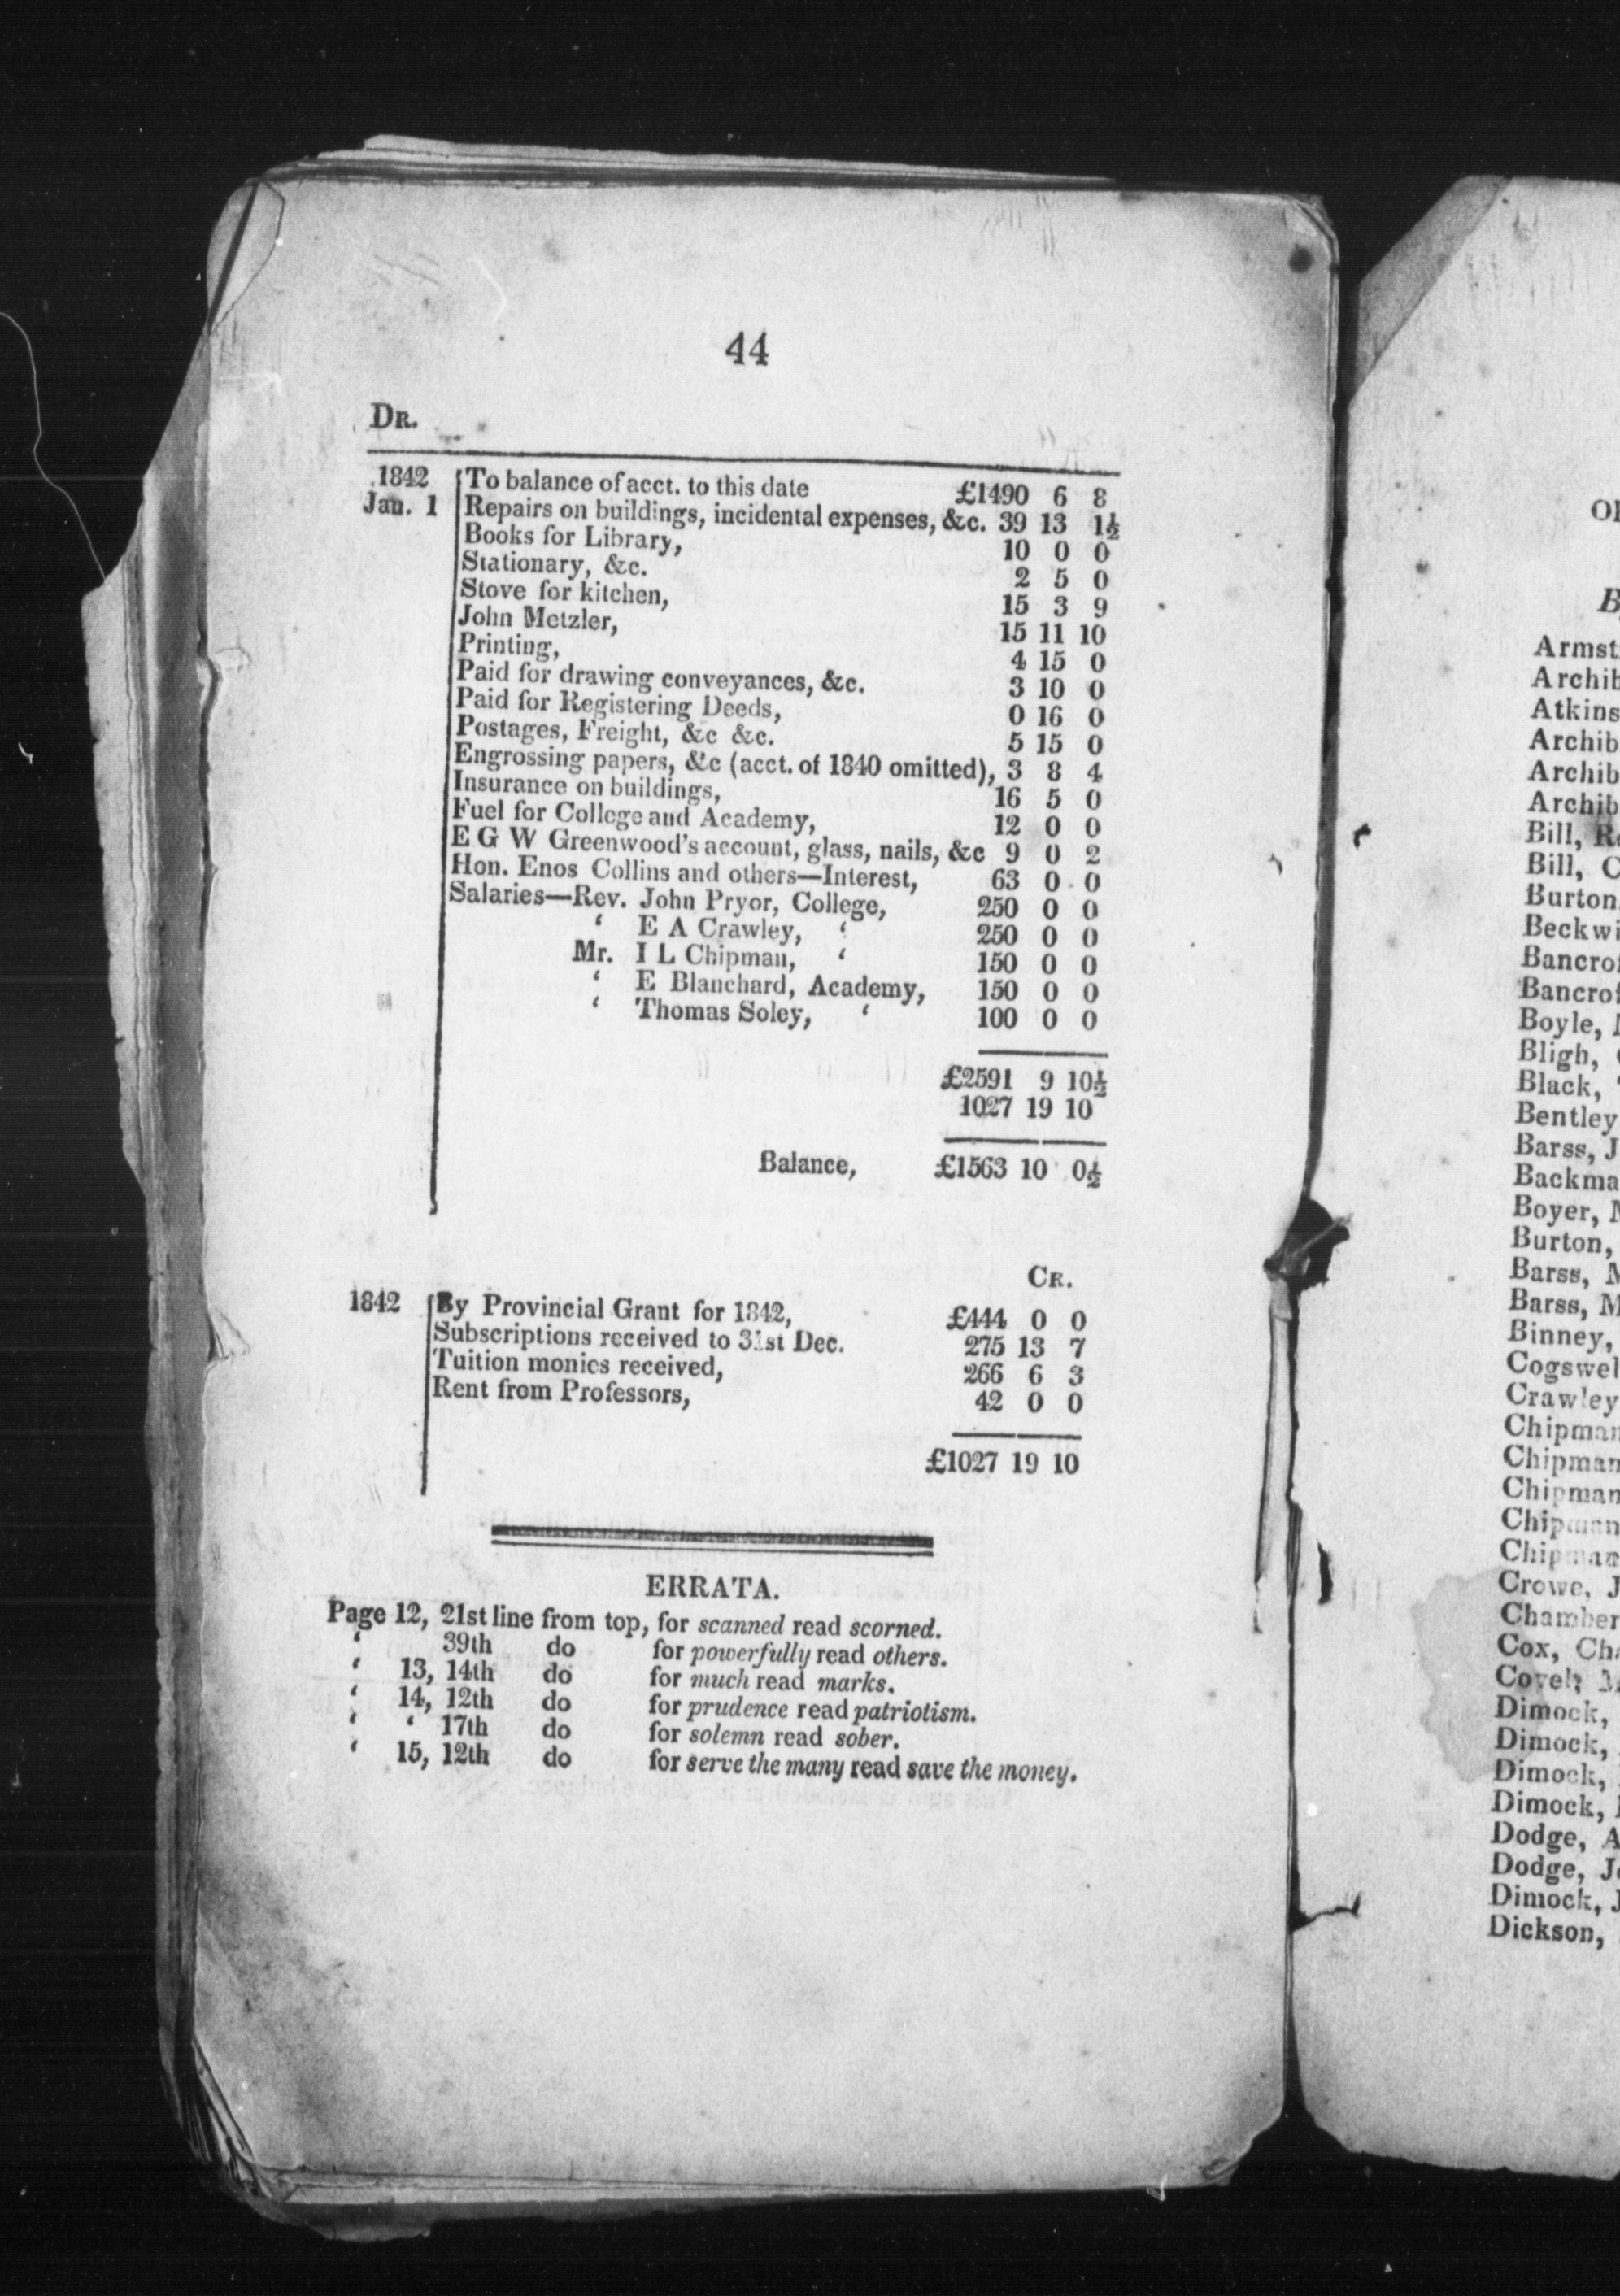 44
DR.
1842 To balance of acct. to this date £1490 6 8
Jan. 1 Repairs on buildings, incidental expenses, &c. 39 13 1½
Books for Library, 10 0 0
Stationary, &c. 2 5 0
Stove for kitchen, 15 3 9
John Metzler, 15 11 10
Printing, 4 15 0
Paid for drawing conveyances, &c. 3 10 0
Paid for Registering Deeds, 0 16 0
Postages, Freight, &c &c. 5 15 0
Engrossing papers, &c (acct. of 1840 omitted), 3 8 4
Insurance on buildings, 16 5 0
Fuel for College and Academy, 12 0 0
E G W Greenwood's account, glass, nails, &c 9 0 2
Hon. Enos Collins and others—Interest, 63 0 0
Salaries—Rev. John Pryor, College, 250 0 0
‘ E A Crawley, ‘ 250 0 0
Mr. I L Chipman, ‘ 150 0 0
‘ E Blanchard, Academy, 150 0 0
‘ Thomas Soley, ‘ 100 0 0
£2591 9 10½
1027 19 10
Balance, £1563 10 0½
CR.
1842 By Provincial Grant for 1842, £444 0 0
Subscriptions received to 31st Dec. 275 13 7
Tuition monies received, 266 6 3
Rent from Professors, 42 0 0
£1027 19 10
ERRATA.
Page 12, 21st line from top, for scanned read scorned.
‘ 39th do for powerfully read others.
‘ 13, 14th do for much read marks.
‘ 14, 12th do for prudence read patriotism.
‘ ‘ 17th do for solemn read sober.
‘ 15, 12th do for serve the many read save the money.
Armst
Archib
Atkins
Archib
Archib
Archib
Bill, R
Bill, C
Burton
Beckwi
Bancrof
Bancrof
Boyle,
Bligh,
Black,
Bentley
Barss, J
Backma
Boyer,
Burton,
Barss, M
Barss, M
Binney,
Cogswel
Crawley
Chipman
Chipman
Chipman
Chipman
Chipman
Crowe, J
Chamber
Cox, Cha
Dimock,
Dimock,
Dimock,
Dimock,
Dodge, A
Dodge, J
Dimock, J
Dickson,